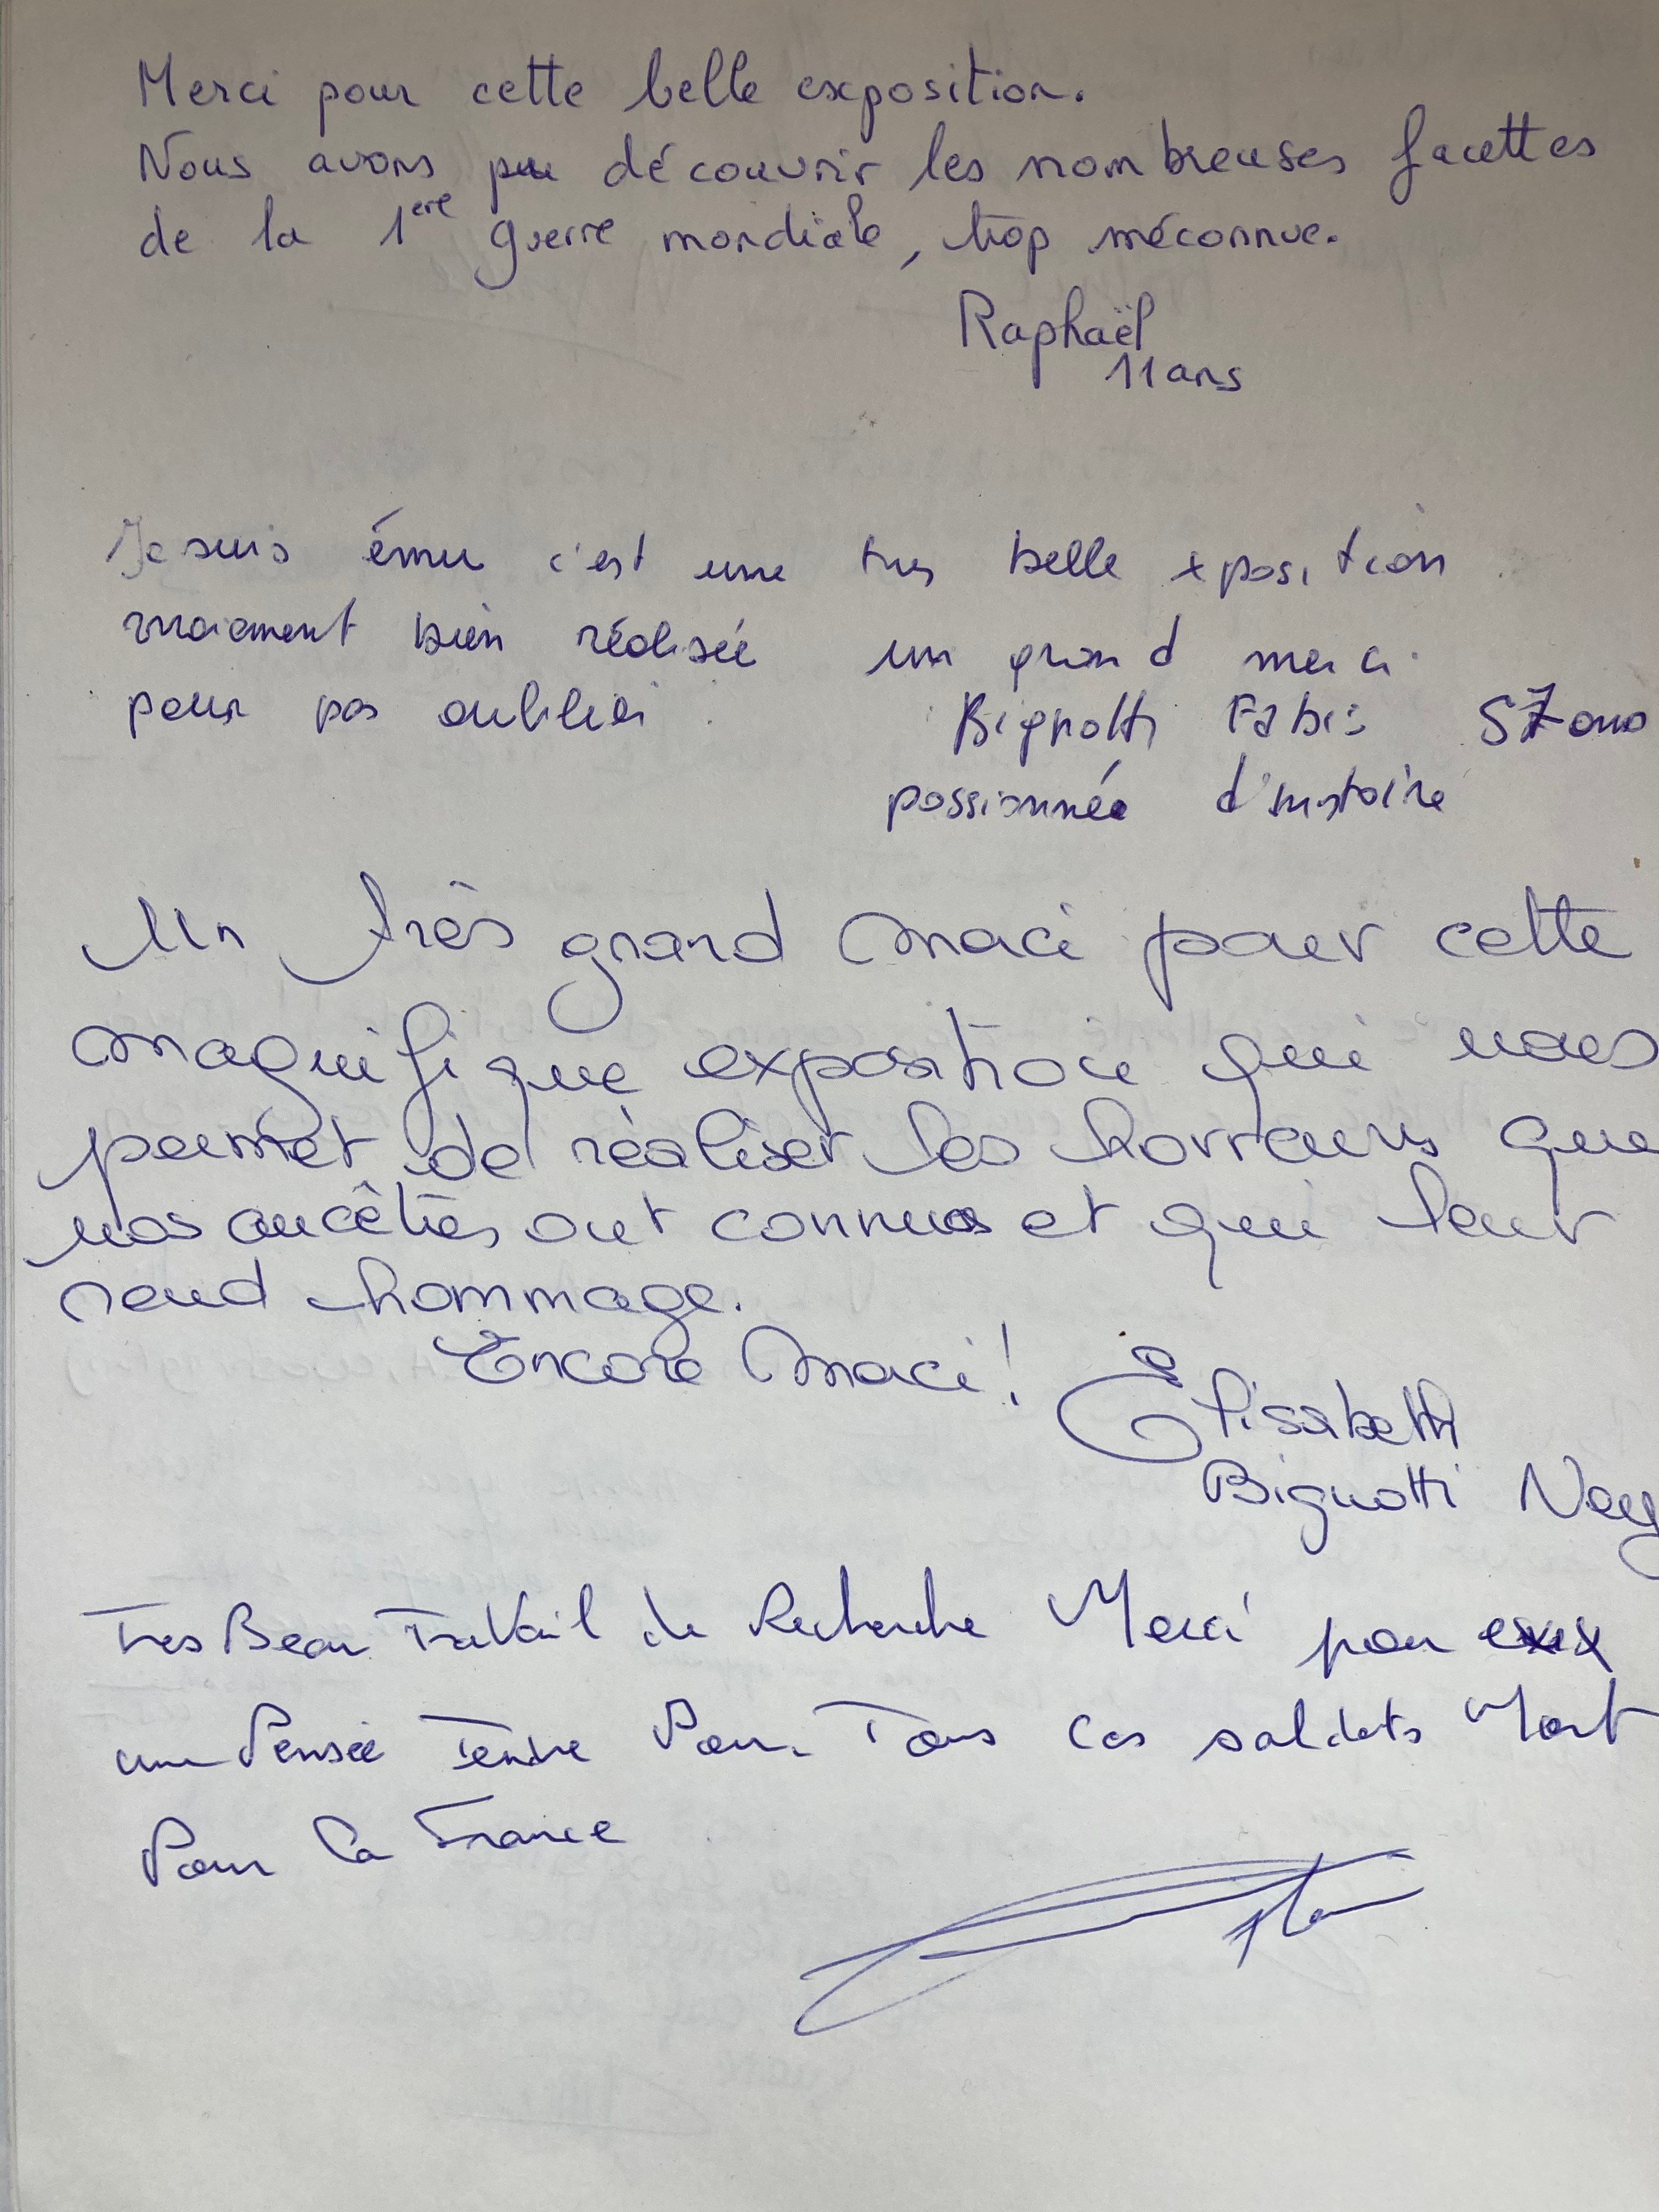 Merci pour cette belle exposition.
Nous avons pu découvrir les nombreuses facettes
de la 1ere guerre mondiale, trop méconnue.
Raphaël
11 ans
Je suis ému c'est une tres belle xposition
vraiement bien réalisée un grand merci
pour pas oublier Bignotti 57 ans
passionnée d'histoire
Un très grand merci pour cette
magnifique exposition qui nous
permet de réaliser les horreurs que
nos ancêtres ont connues et qui leur
rend hommage.
Encore merci !
Élisabeth
Bignotti
Tres Beau Travail de Recherche Merci pour eux
une Pensée Tendre Pour Tous ces saldats Mort
Pour la France